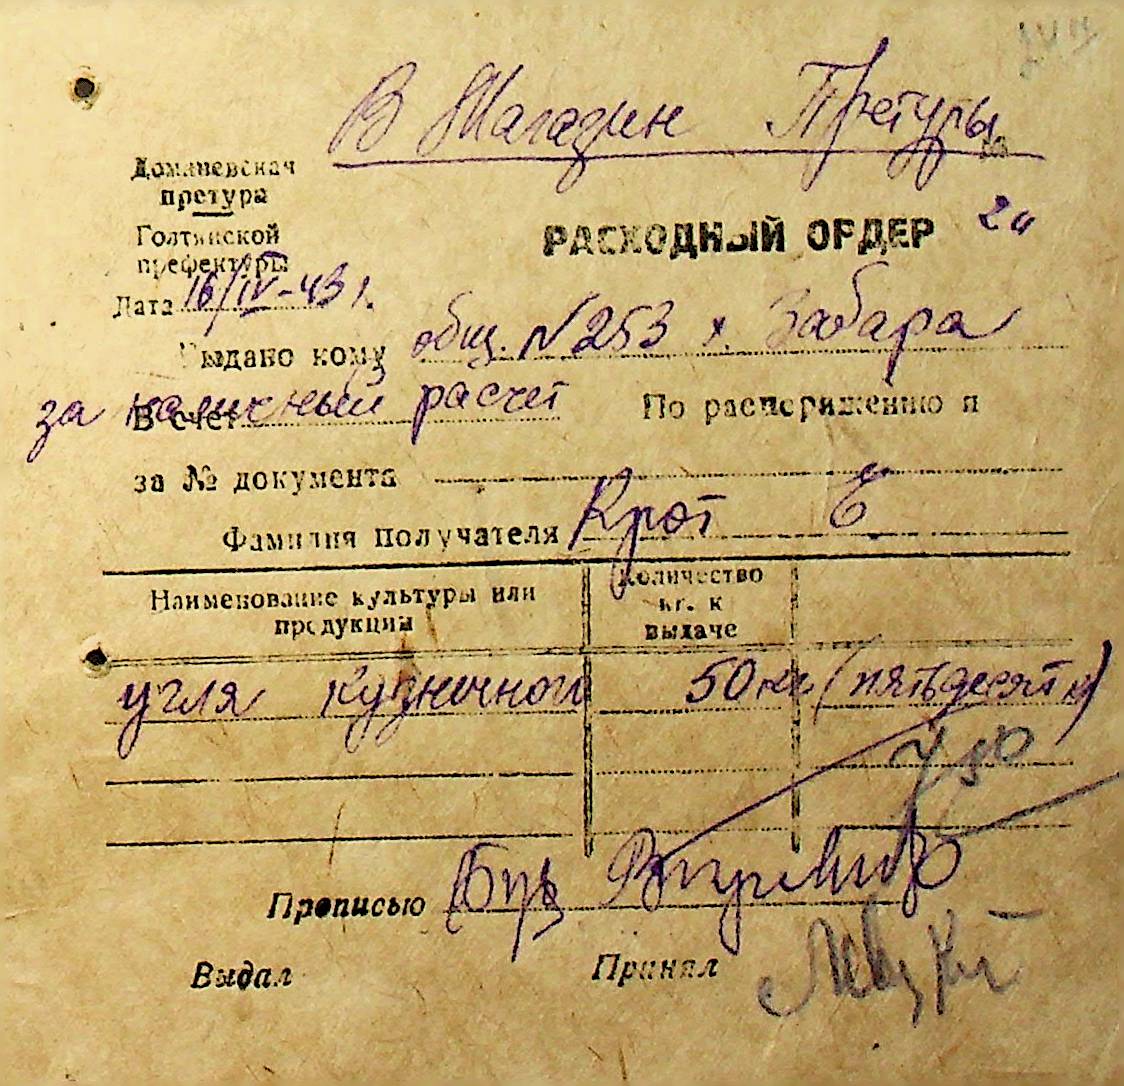 В Магазин Претуры
Доманевская
претура
Голтянской
префектуры
РАСХОДНЫЙ ОРДЕР
Дата 16/IV-43 г.
Выдано кому общ. № 253 х. Забара
В счет за наличный расчет По распоряжению
за № документа
Фамилия получателя Крот Е
Наименование культуры или
продукции
Количество
кг. к
выдаче
угля кузнечного 50 кг (пятьдесят к)
Прописью
Выдал Принял